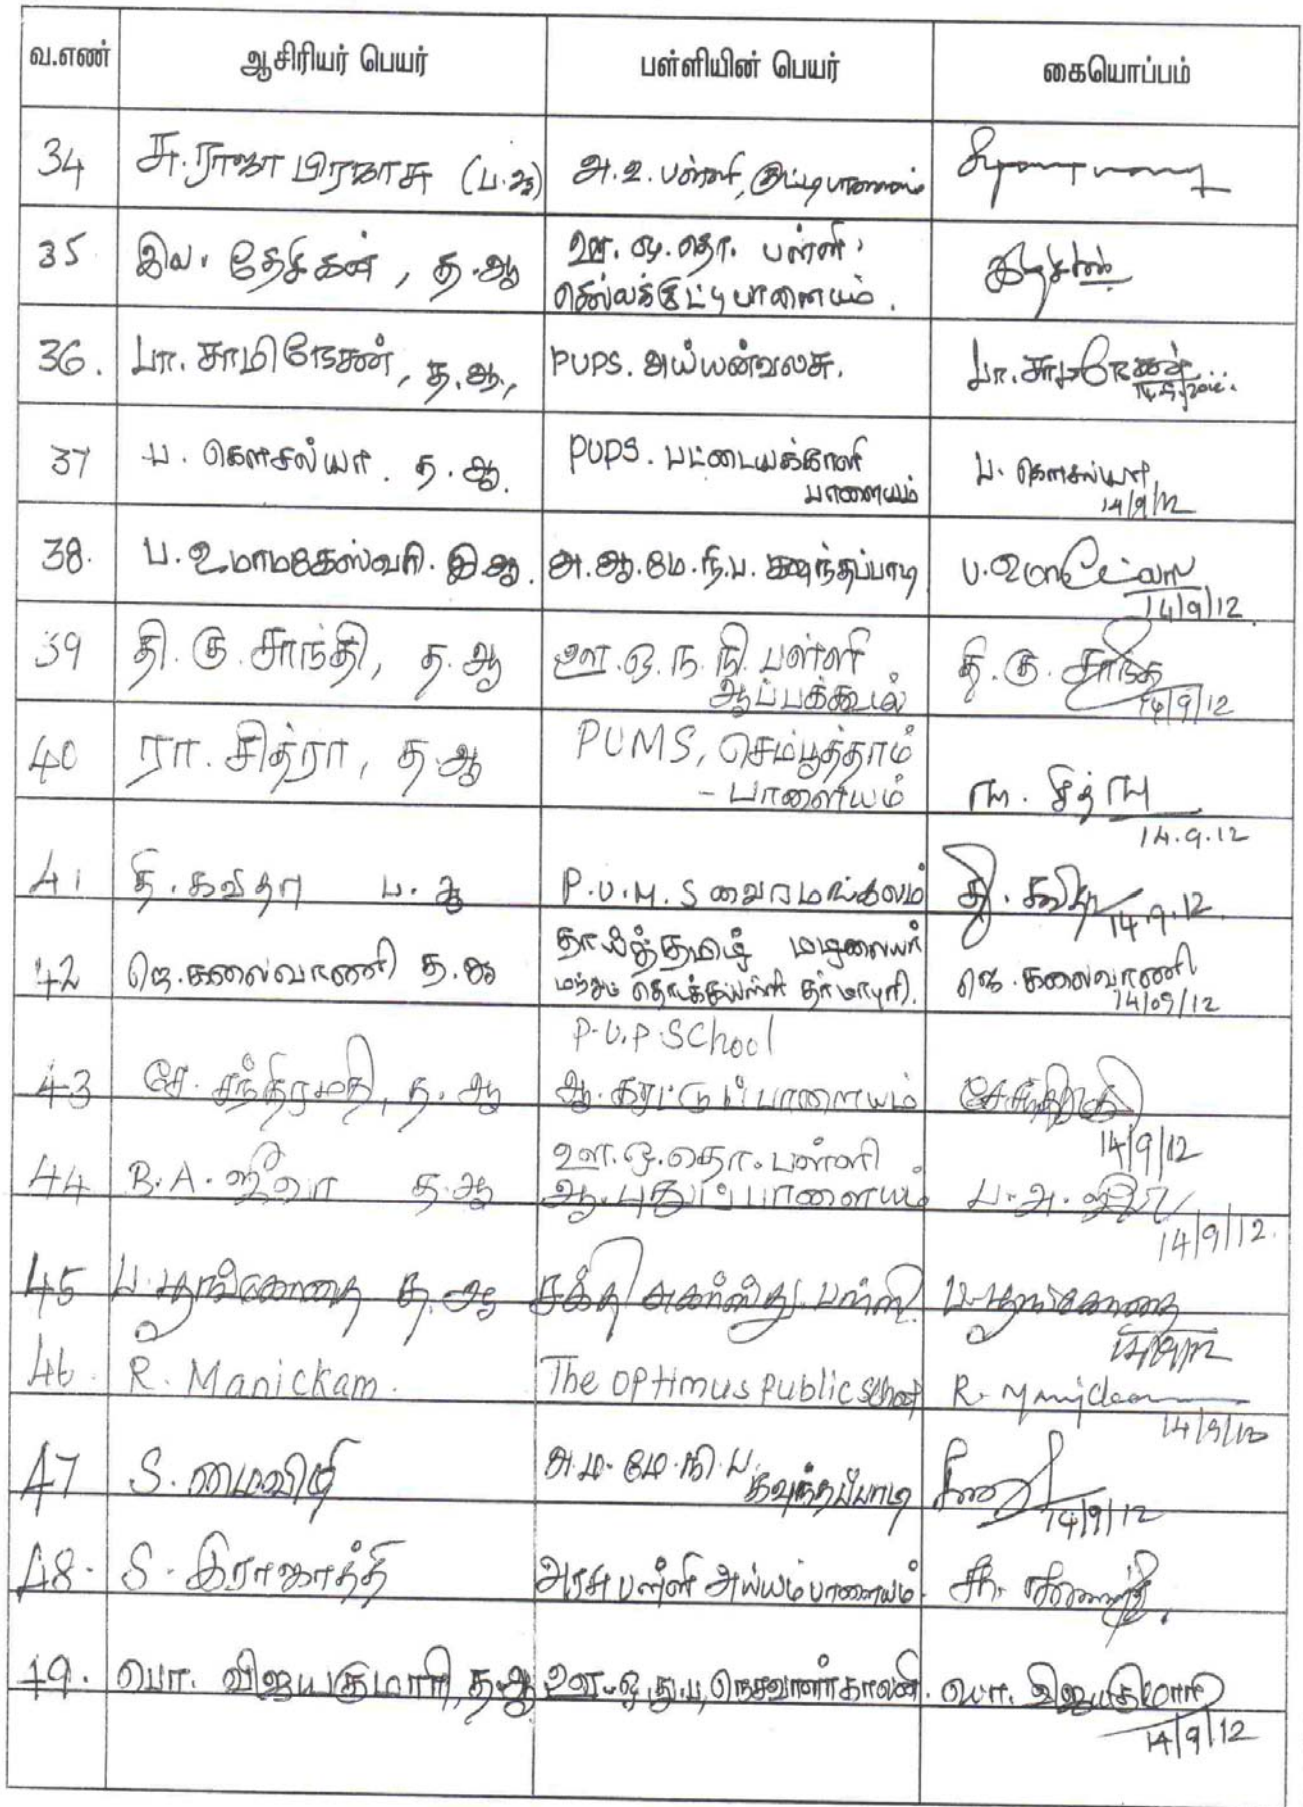 வ.எண் ஆசிரியர் பெயர் பள்ளியின் பெயர் கையொப்பம்
34 சு.ராஜா பிரகாசு (ப.ஆ) அ.உ.பள்ளி, குட்டிபாளையம்
35 இல. தேசிகன், த.ஆ ஊ.ஒ.தொ. பள்ளி,
செல்லக்குட்டிபாளையம்.
36. பா. சாமிநேசன், த.ஆ., PUPS. அய்யன்வலசு. பா. சாமிநேசன்
37 ப. கௌசல்யா. த.ஆ. PUPS. பட்டையக்காளி ப. கௌசல்யா
பாளையம் 14/9/12
38. ப.உமாமகேஸ்வரி. இ.ஆ. அ.ஆ.மே.நி.ப. கவுந்தப்பாடி ப.உமாமகேஸ்வரி
14/9/12
39 தி.கு.சாந்தி, த.ஆ ஊ.ஒ.ந.நி.பள்ளி தி.கு.சாந்தி
ஆப்பக்கூடல் 14/9/12
40 ரா. சித்ரா, த.ஆ PUMS, செம்பூத்தாம்
- பாளையம் ரா. சித்ரா
14.9.12
41 தி.கவிதா ப.ஆ P.U.M.S வைரமங்கலம் தி.கவிதா 14.9.12
42 ஜெ.கலைவாணி த.ஆ தாய்த்தமிழ் மழலையர் ஜெ.கலைவாணி
மற்றும் தொடக்கப்பள்ளி தர்மாபுரி. 14/09/12
P.U.P SChool
43 சே. சந்திரமதி, த.ஆ ஆ.கரட்டுப்பாளையம் சே.சந்திரமதி
14/9/12
ஊ.ஒ.தொ.பள்ளி
44 B.A.ஜீவா த.ஆ ஆ.புதுப்பாளையம் ப.அ.ஜீவா
14/9/12.
45 ப.பூங்கோதை த.ஆ சக்தி பள்ளி ப.பூங்கோதை
14/9/12
46. R. Manickam. The Optimus Public School R. Manickam
14/9/12
47 S. மைவிழி அ.ம.மே.நி.ப.
கவுந்தப்பாடி 14/9/12
48. S. இராஜாத்தி அரசு பள்ளி அய்யம்பாளையம்.
49. பொ. விஜயகுமாரி, த.ஆ ஊ.ஒ.து.ப, நெசவாளர்காலனி. பொ. விஜயகுமாரி
14/9/12